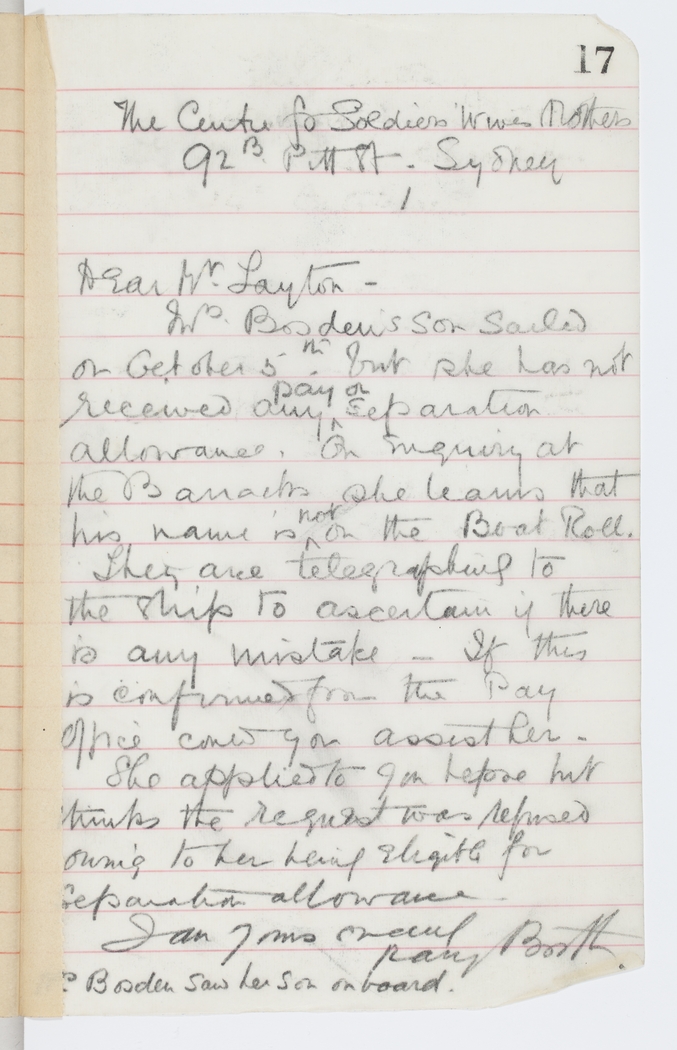 17
The Centre for Soldiers' Wives Mothers
92B. Pitt St. Sydney
Dear Mr. Layton -
Mrs. Bosden's son sailed
on October 5th. but she has not
received any pay or separation
allowance. On inquiry at
the Barracks, she learns that
his name is not on the Boat Roll.
They are telegraphing to
the ship to ascertain if there
is any mistake - If this
is confirmed from the Pay
Office could you assist her -
She applied to you before but
thinks the request was refused
owing to her being eligible for
separation allowance
I am yours
Booth
Bosden saw her son on board.